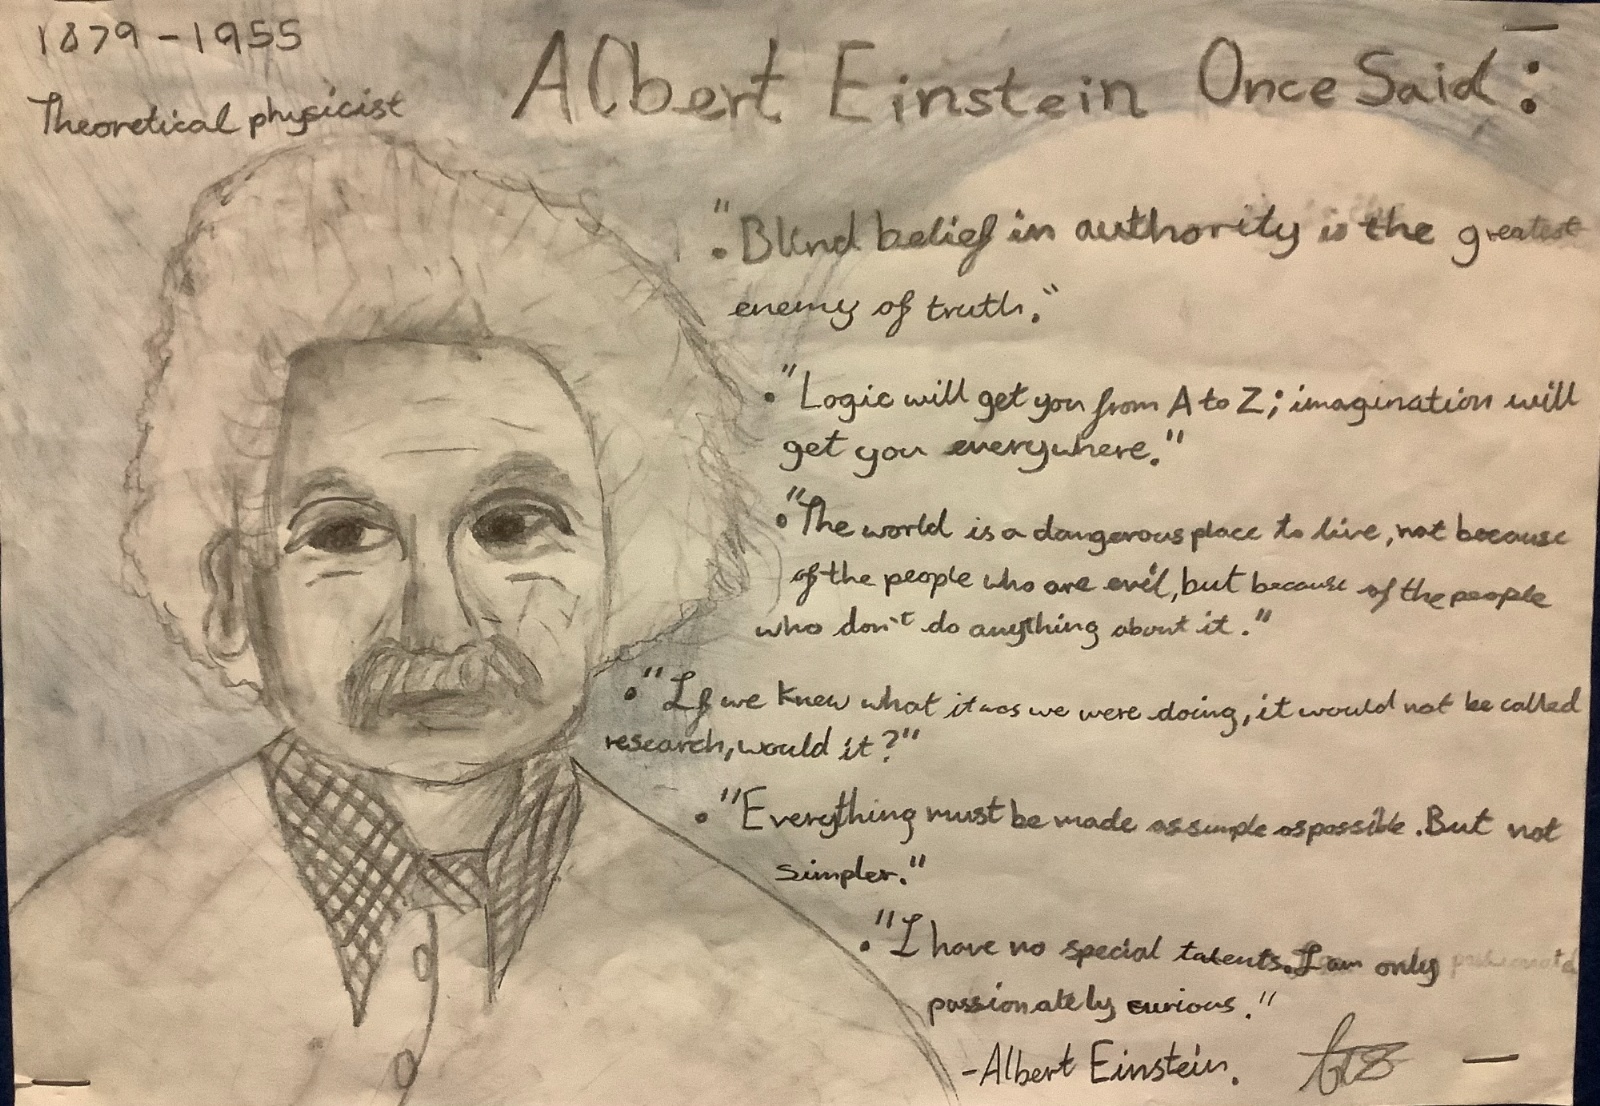 1879-1955
Theoretical physicist
Albert Einstein Once Said:
• "Blind belief in authority is the greatest
enemy of truth."
• "Logic will get you from A to Z; imagination will
get you everywhere."
• "The world is a dangerous place to live, not because
of the people who are evil, but because of the people
who don't do anything about it."
• "If we knew what it was we were doing, it would not be called
research, would it?"
• "Everything must be made as simple as possible. But not
simpler."
• "I have no special talents. I am only
passionately curious."
-Albert Einstein.